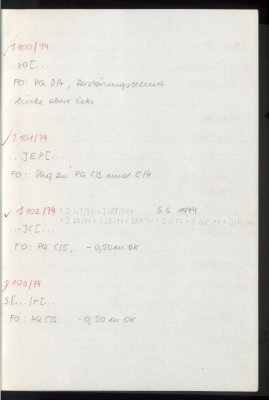 J 100/74
ro[..
FO: PQ D14, Zerstörungsschutt
linke obere Ecke
J 101/74
..]EP[..
FO: Steg zw. PQ C13 und C14
J 102/74 5.6. 1974
..]C[..
FO: PQ C15, -0,50 m OK
J 103/74
S[.../r[..
FO: PQ C15 -0,50 m OK